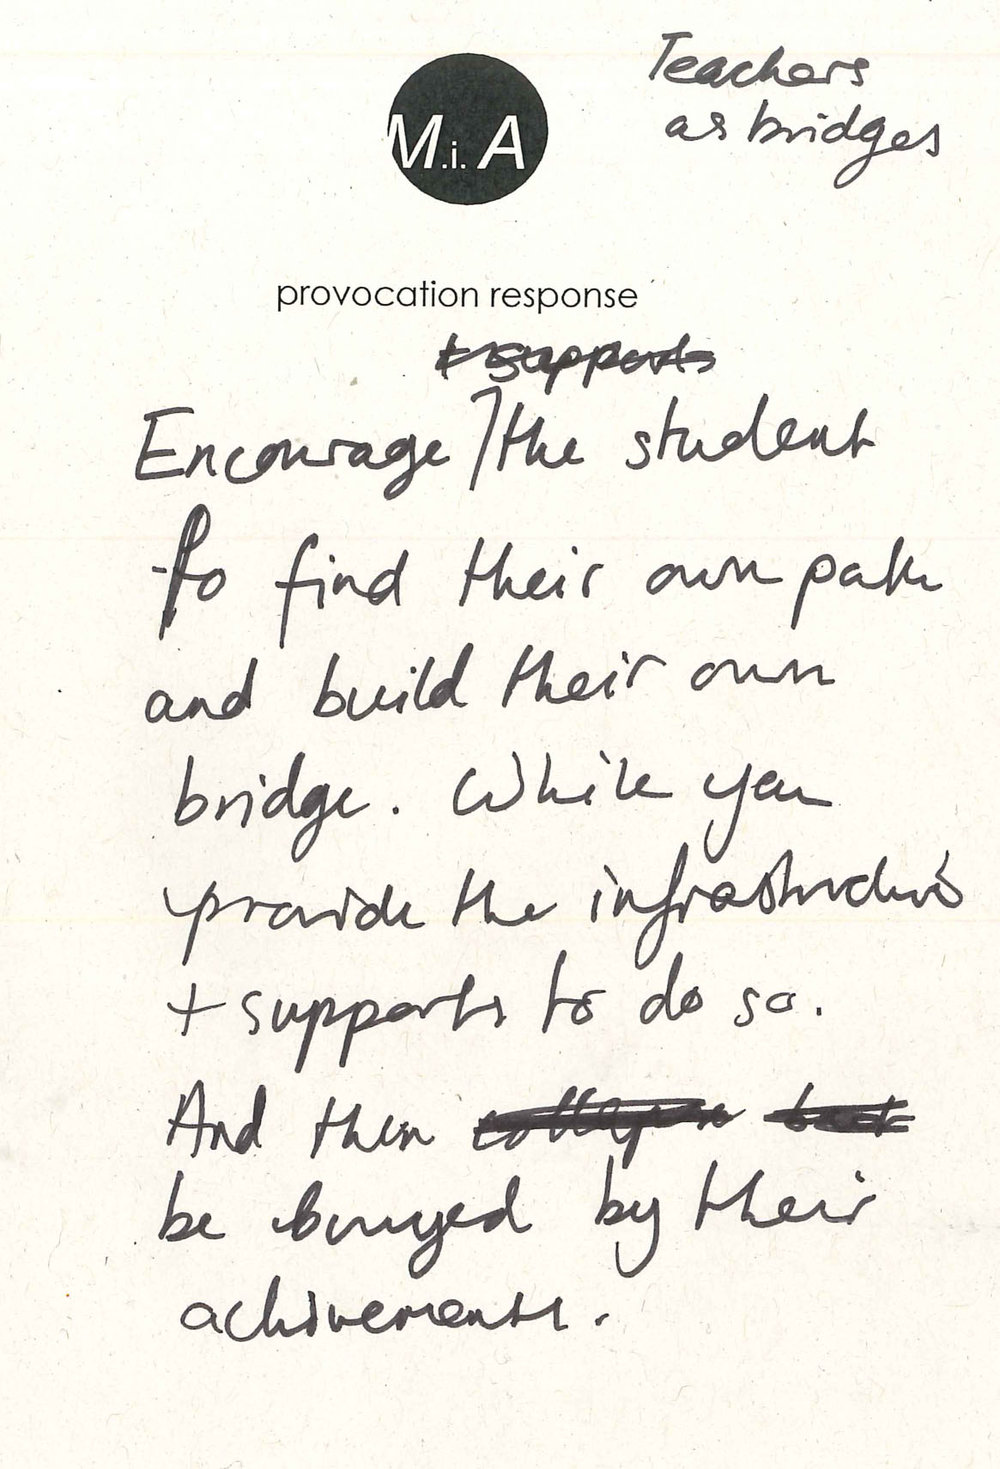 Teachers
as bridges
M.i.A
provocation response
+ supports
Encourage the student
to find their own path
and build their own
bridge. While you
provide the infrastructure
+ supports to do so.
And then
be bouyed by their
achivements.